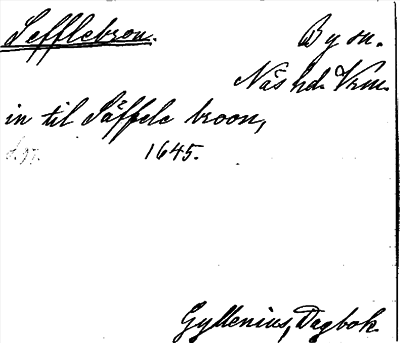 Sefflebron. By sn.
Näs hd. Vrm.
in til Säffele broon,
1645.
Gyllenius, Dagbok